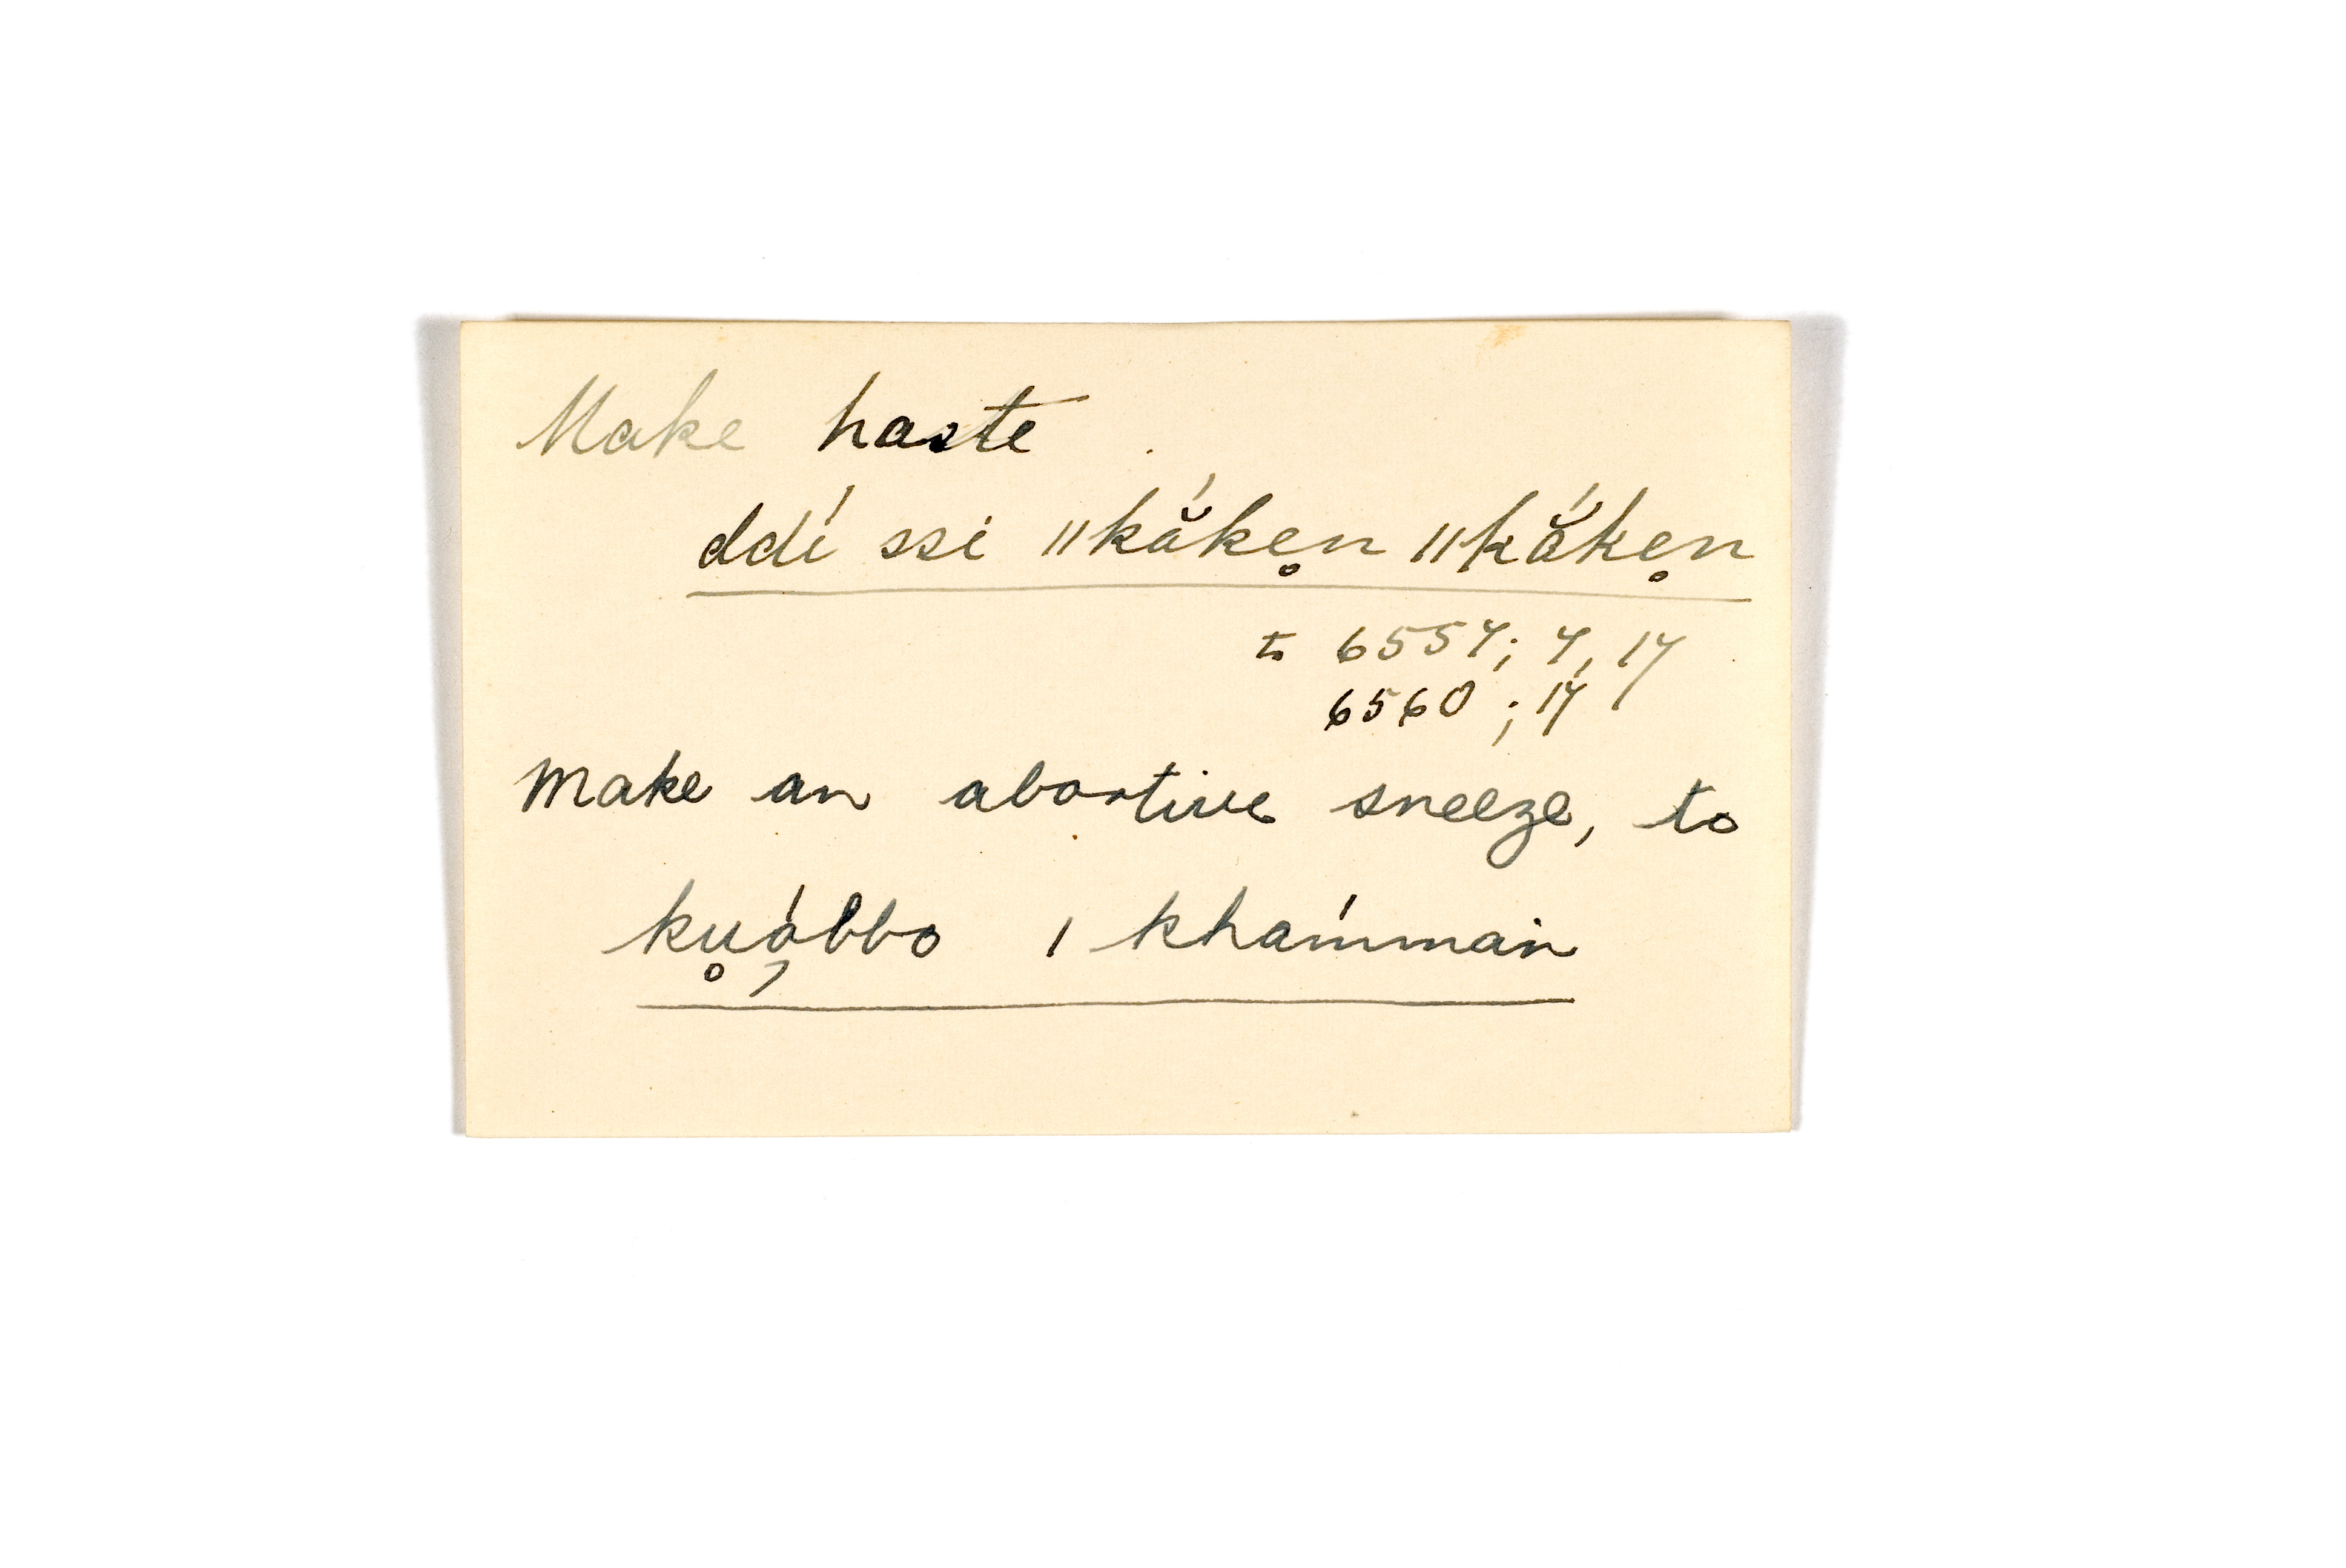 Make haste
ddí ssi ǁkắke̥n ǁkắke̥n
to 6557; 7, 17
6560 ; 17
Make an abortive sneeze, to
ku̥á̦bbo ǀ khámmaiṅ